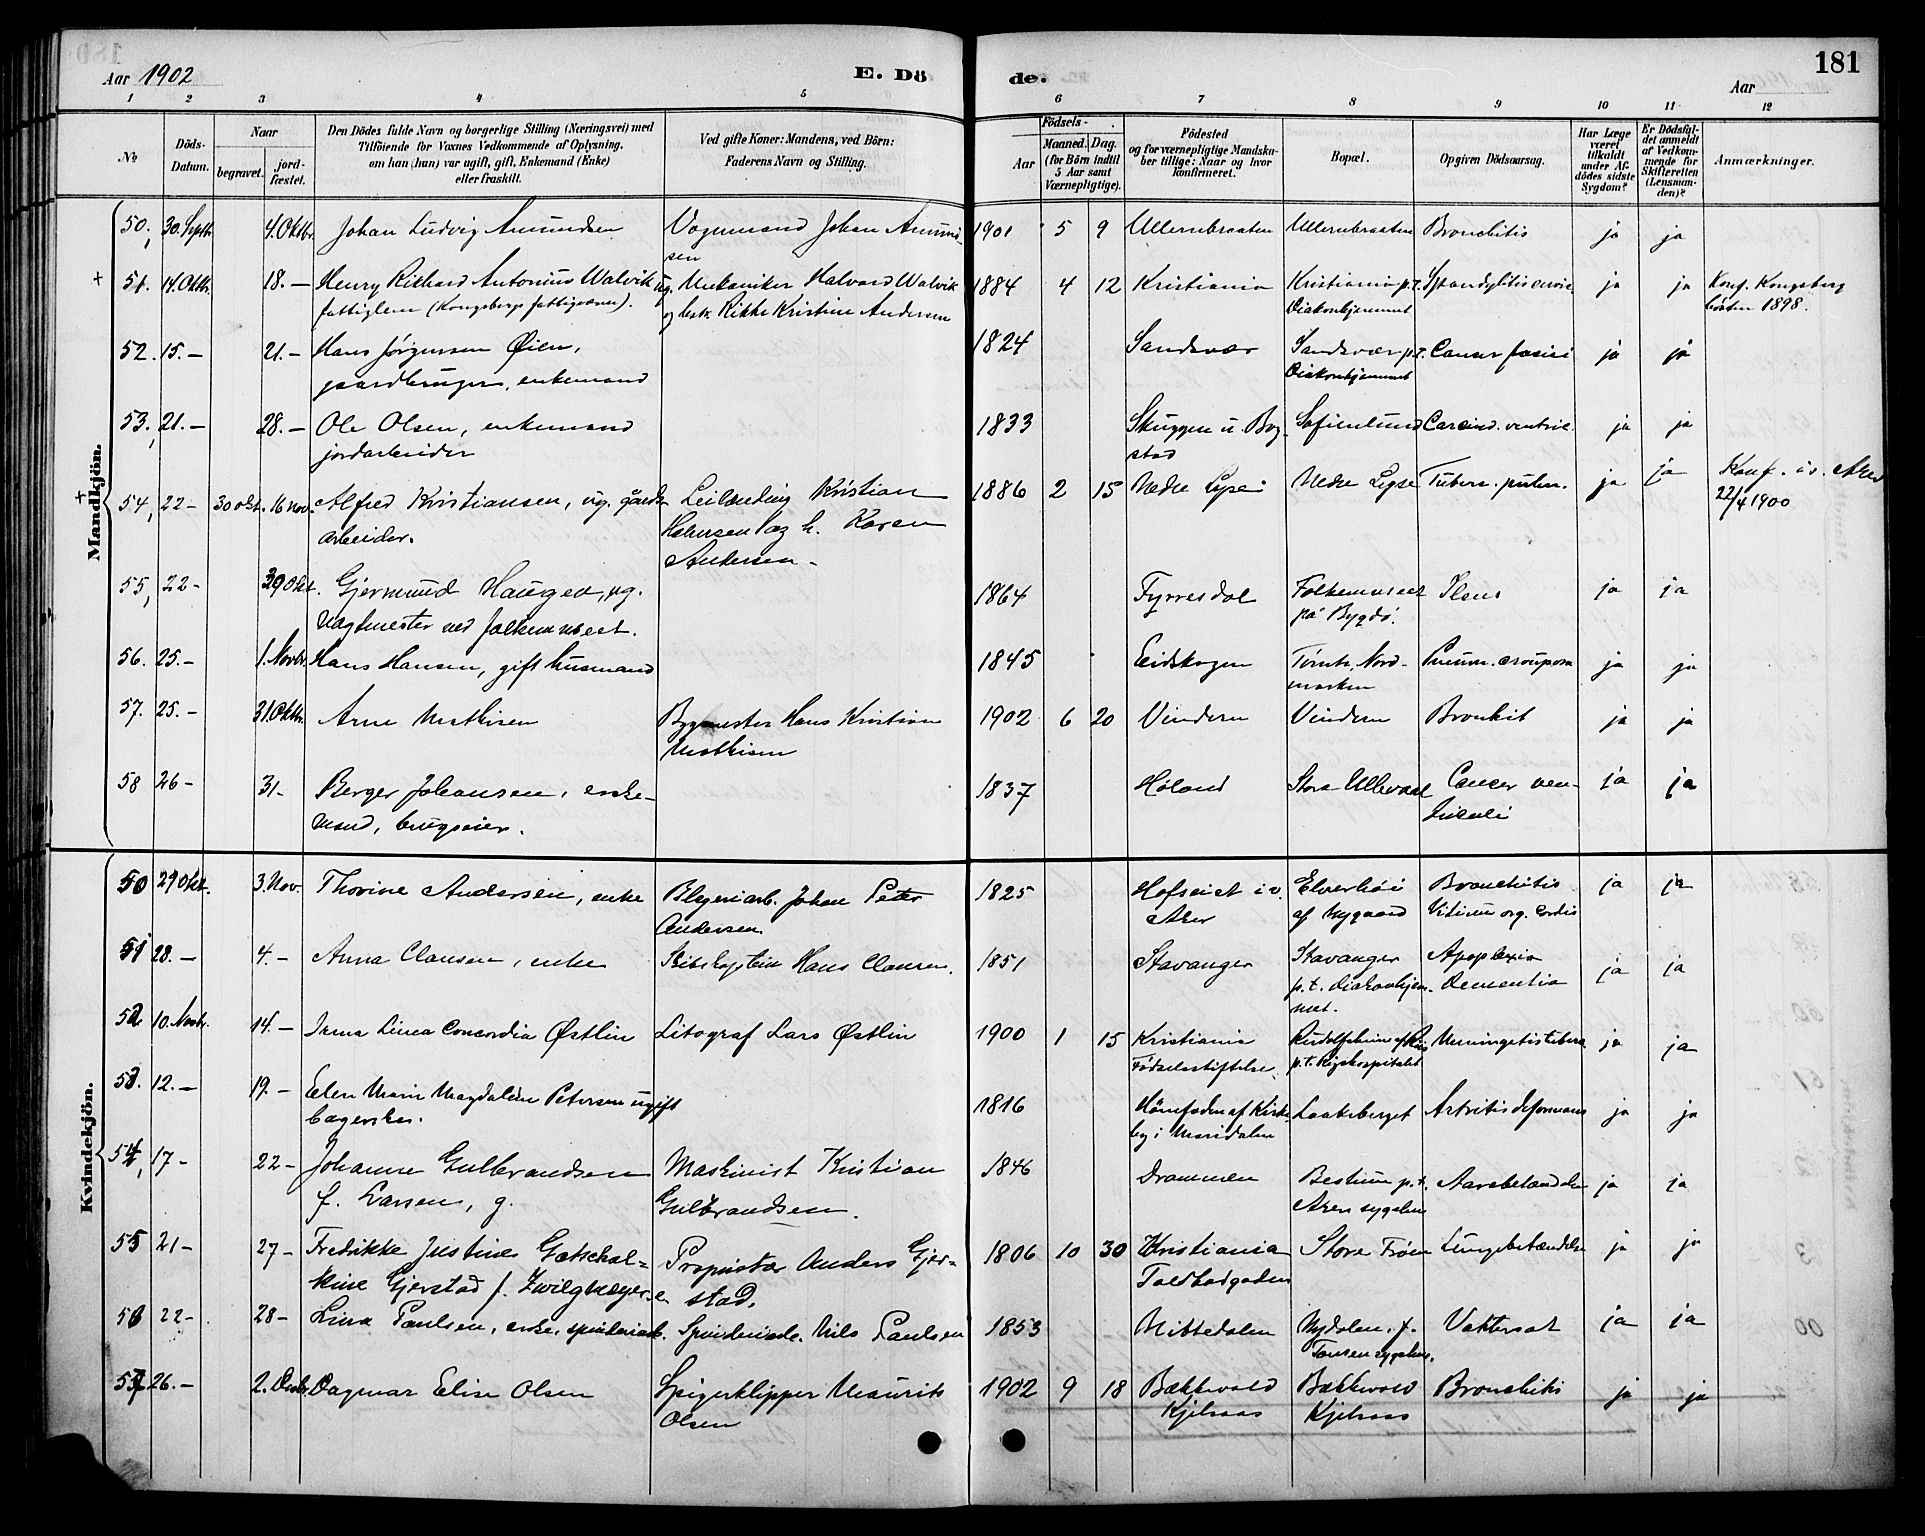 Aar 1902 E. Dö de. Aar 181
1 2 3 4 5 6 7 8 9 10 11 12
No
Döds-Datum.
Naar
begravet. jordfæstet.
Den Dödes fulde Navn og borgerlige Stilling (Næringsvei) med
Tilföiende for Voxnes Vedkommende af Oplysning,
om han (hun) var ugift, gift, Enkemand (Enke)
eller fraskilt.
Ved gifte Koner: Mandens, ved Börn:
Faderens Navn og Stilling.
Födsels-
Aar
Maaned. Dag.
(for Börn indtil
5 Aar samt
Værnepligtige).
Födested
og for værnepligtige Mandska-
ber tillige: Naar og hvor
konfirmeret.
Bopæl.
Opgiven Dödsaarsag.
Har Læge
været
tilkaldt
under Af-
dödes sidste
Sygdom?
Er Dödsfal-
det anmeldt
af Vedkom-
mende for
Skifteretten
(Lensman-
den)?
Anmærkninger.
Mandkjön.
50, 30. Septbr. 4. Oktbr. Johan Ludvig Amundsen Vognmand Johan Amund- 1901 5 9 Ullernbraaten Ullernbraaten Bronchitis ja ja
sen
+ 51. 14. Oktbr. 18. — Henry Rikhard Antonius Walvik ug. Mekaniker Halvard Walvik 1884 4 12 Kristiania Kristiania p.t. ja ja Konf. Kongsberg
fattiglem (Kongsbergs fattigvæsen). og hstr. Rikke Kristine Andersen Diakonhjemmet hösten 1898.
52. 15. — 21. — Hans Jörgensen Øien, 1824 Sandsvær Sandsvær p.t. Cancer faciei ja ja
gaardbruger, enkemand Diakonhjemmet
53, 21. — 28. — Ole Olsen, enkemand 1833 Skuggen u. Bog- Sofienlund Carcind. ventric. ja ja
jordarbeider stad
+ 54, 22 — 30 okt. 16 nov. Alfred Kristiansen, ug. gårds- Leilænding Kristian 1886 2 15 Nedre Lysei Nedre Lysei Tuberc. pulm. ja ja Konf. i v. Aker
arbeider. og h. Karen 22/4 1900
Andersen.
55, 22 — 30 Okt. Gjermund Haugen, ug. 1864 Fyrresdal Folkemuseet Ileus ja ja
Vagtmester ved folkemuseet. på Bygdö.
56. 25. — 1. Novbr. Hans Hansen, gift husmand 1845 Eidskogen Nord- Pneum. crouposa ja ja
marken
57. 25. — 31. Oktbr. Arne Mathisen Bygmester Hans Kristian 1902 6 20 Vindern Vindern Bronkit ja ja
Mathisen
58 26 — 31 — Berger Johansen, enke- 1837 Höland Store Ullevaal Cancer ven- ja ja
mand, brugseier. triculi
Kvindekjön.
50 29 Okt. 3. Nov. Thorine Andersen, enke Blegeriarb. Johan Peter 1825 Hofseiet i v. Elverhöi Bronchitis ja ja
Andersen Aker af Nygaard Vitium org. cordis
51 28. — 4. — Anna Clausen, enke Skibskaptein Hans Clausen. 1851 Stavanger Stavanger Apoplexia ja ja
p.t. diakonhjem- dementia
met.
52 10. Novbr. 14. — Irma Linea Concordia Østlin Litograf Lars Østlin 1900 1 15 Kristiania Meningitis tuberc. ja ja
Fødselsstiftelse. p.t. Rigshospitalet
53. 12. — 19. — Elen Marie Magdalene Petersen ugift 1816 af Kirke- Laakeberget Artritis deformans ja ja
bagerske. by i Maridalen
54, 17 — 22 — Johanne Gulbrandsen Maskinist Kristian 1846 Drammen Bestum p.t. Aarebetændelse ja ja
f. Larsen, g. Gulbrandsen. Akers sygehus
55 21 — 27 — Fredrikke Justine Gotschal- Proprietær Anders Gjer- 1806 10 30 Kristiania Store Frøen Lungebetændelse ja ja
kine Gjerstad f. stad. Toldbodgaden
56 22 — 28 — Lina Paulsen, enke, spinderiarb. Spinderiarb. Nils Paulsen 1853 Nittedalen Nydalen. f. Vattersot ja ja
57 26. — 2. Decbr. Dagmar Elise Olsen Spigerklipper Maurits 1902 9 18 Bakkevold Bakkevold Bronchitis ja ja
Olsen Kjelsaas Kjelsaas